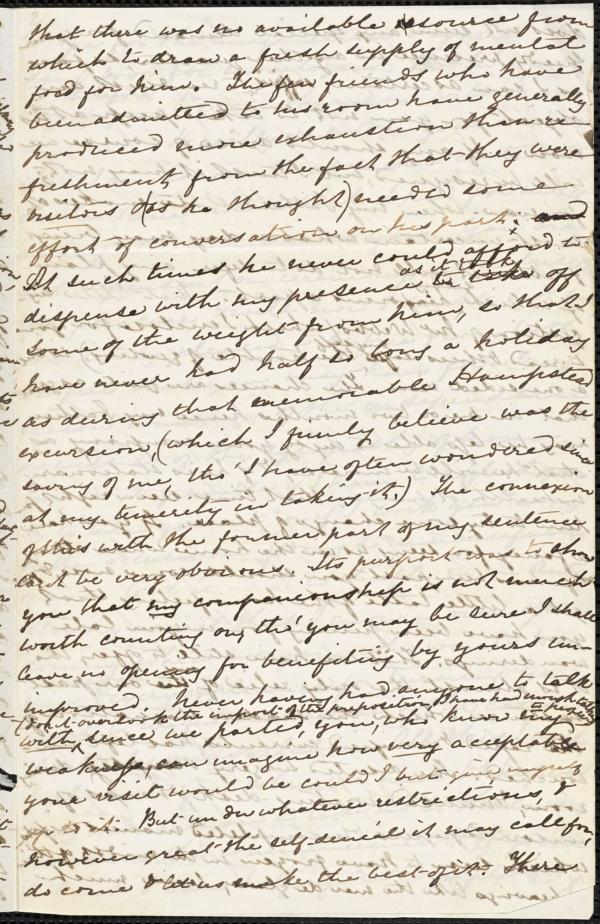 that there was no available resource from
which to draw a fresh supply of mental
food for him. The few friends who have
been admitted to his room have generally
produced more exhaustion than re-
freshment from the fact that they were
visitors & (as he thought) needed some
effort of conversation on his part: and
At such times he never could afford to
dispense with my presence as it talk off
some of the weight from him, so that I
have never had half so long a holiday
as during that memorable Hampstead
excursion, (which I firmly believe was the
saving of me, tho' I have often wondered since
at my temerity in taking it.) The connexion
of this with the former part of my sentence
can't be very obvious. Its purport was to show
you that my companionship is not much
worth counting on, tho' you may be sure I shall
leave no opening for benefiting by yours un-
improved. Never having had anyone to talk
(don't overlook the import of the preposition, I have had enough talking to people)
with, since we parted, you, who know my
weakness, can imagine how very acceptable
your visit would be could I but give myself
up to it. But under whatever restrictions, &
however great the self-denial it may call for,
do come & let us make the best of it. There